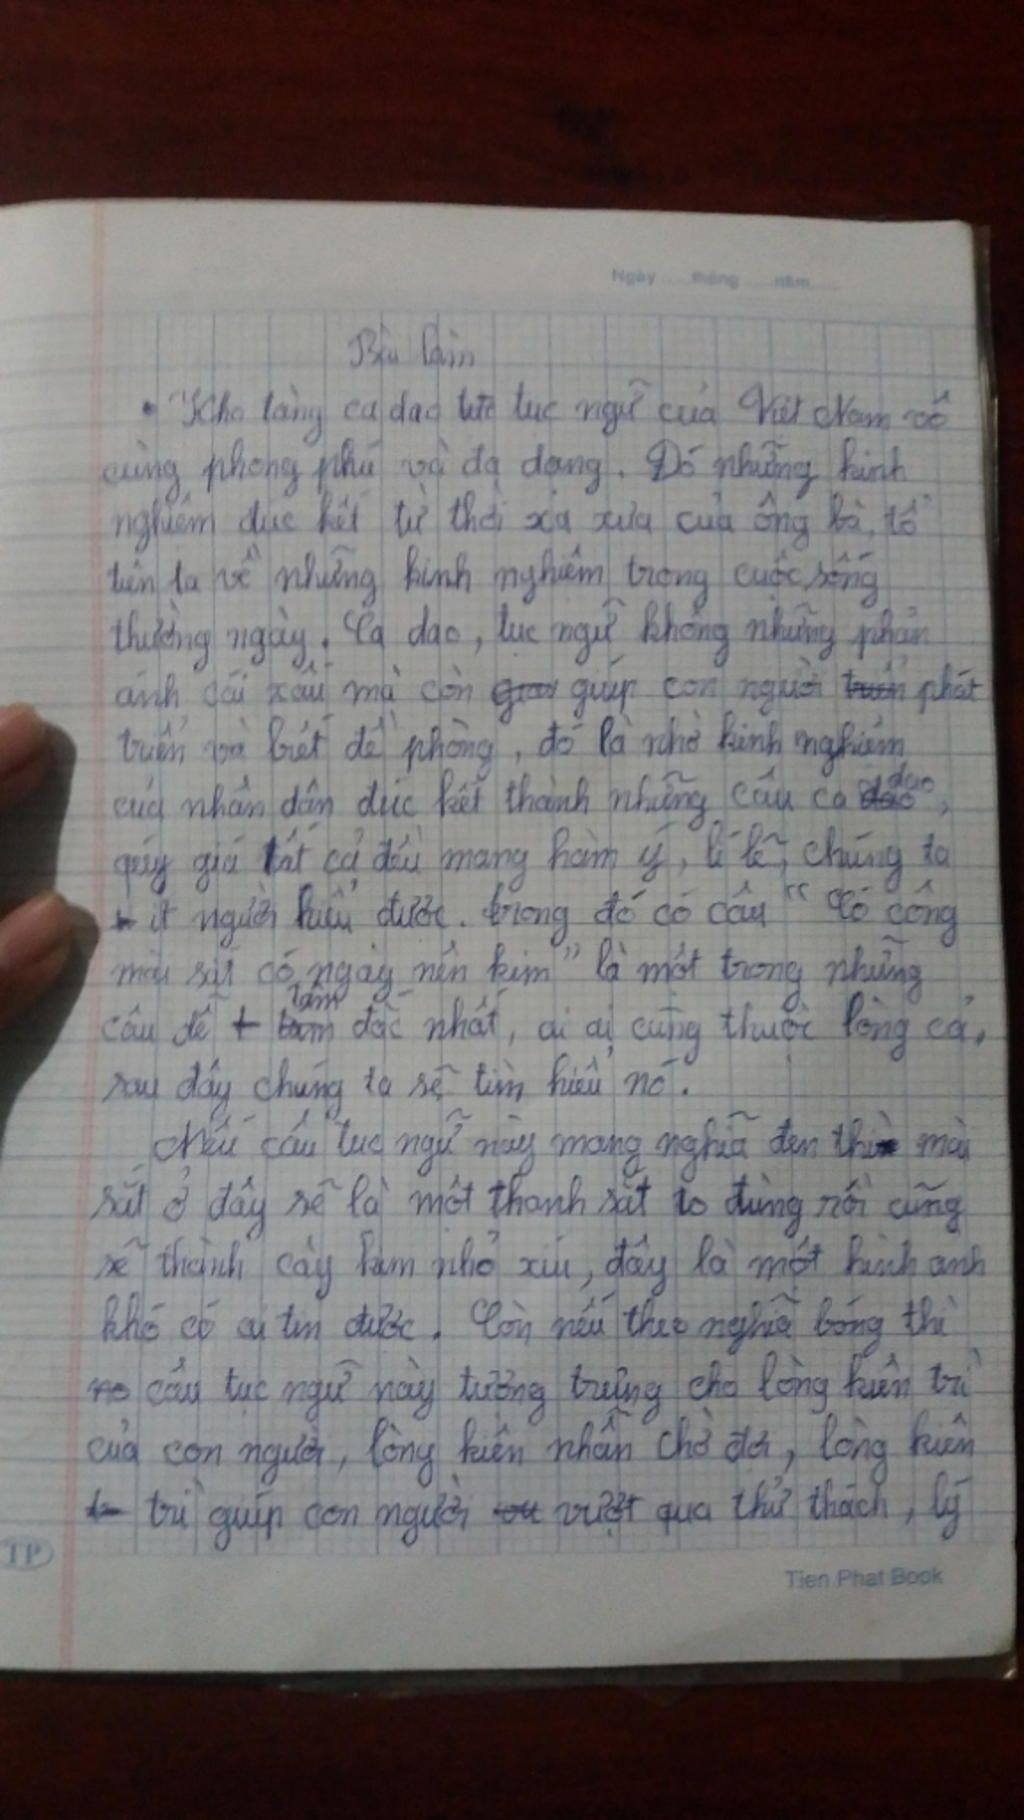 Ngày .... tháng .... năm ....
Bài làm
Kho tàng ca dao tục ngữ của Việt Nam vô
cùng phong phú và đa dạng. Đó những kinh
nghiệm đúc kết từ thời xa xưa của ông bà, tổ
tiên ta về những kinh nghiệm trong cuộc sống
thường ngày. Ca dao, tục ngữ không những phản
ánh cái xấu mà còn giúp con người phát
triển và biết đề phòng, đó là nhờ kinh nghiệm
của nhân dân đúc kết thành những câu ca dao,
quý giá tất cả đều mang hàm ý, lí lẽ, chúng ta
ít người hiểu được. trong đó có câu "Có công
mài sắt có ngày nên kim" là một trong những
câu dễ tâm đắc nhất, ai ai cũng thuộc lòng cả,
sau đây chúng ta sẽ tìm hiểu nó.
Nếu câu tục ngữ này mang nghĩa đen thì mài
sắt ở đây sẽ là một thanh sắt to đùng rồi cũng
sẽ thành cây kim nhỏ xíu, đây là một hình ảnh
khó có ai tin được. Còn nếu theo nghĩa bóng thì
câu tục ngữ này tượng trưng cho lòng kiên trì
của con người, lòng kiên nhẫn chờ đợi, lòng kiên
trì giúp con người vượt qua thử thách, lý
TP
Tien Phat Book